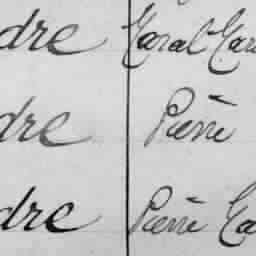 dre Caral Car
dre Pierre
dre Pierre Ca